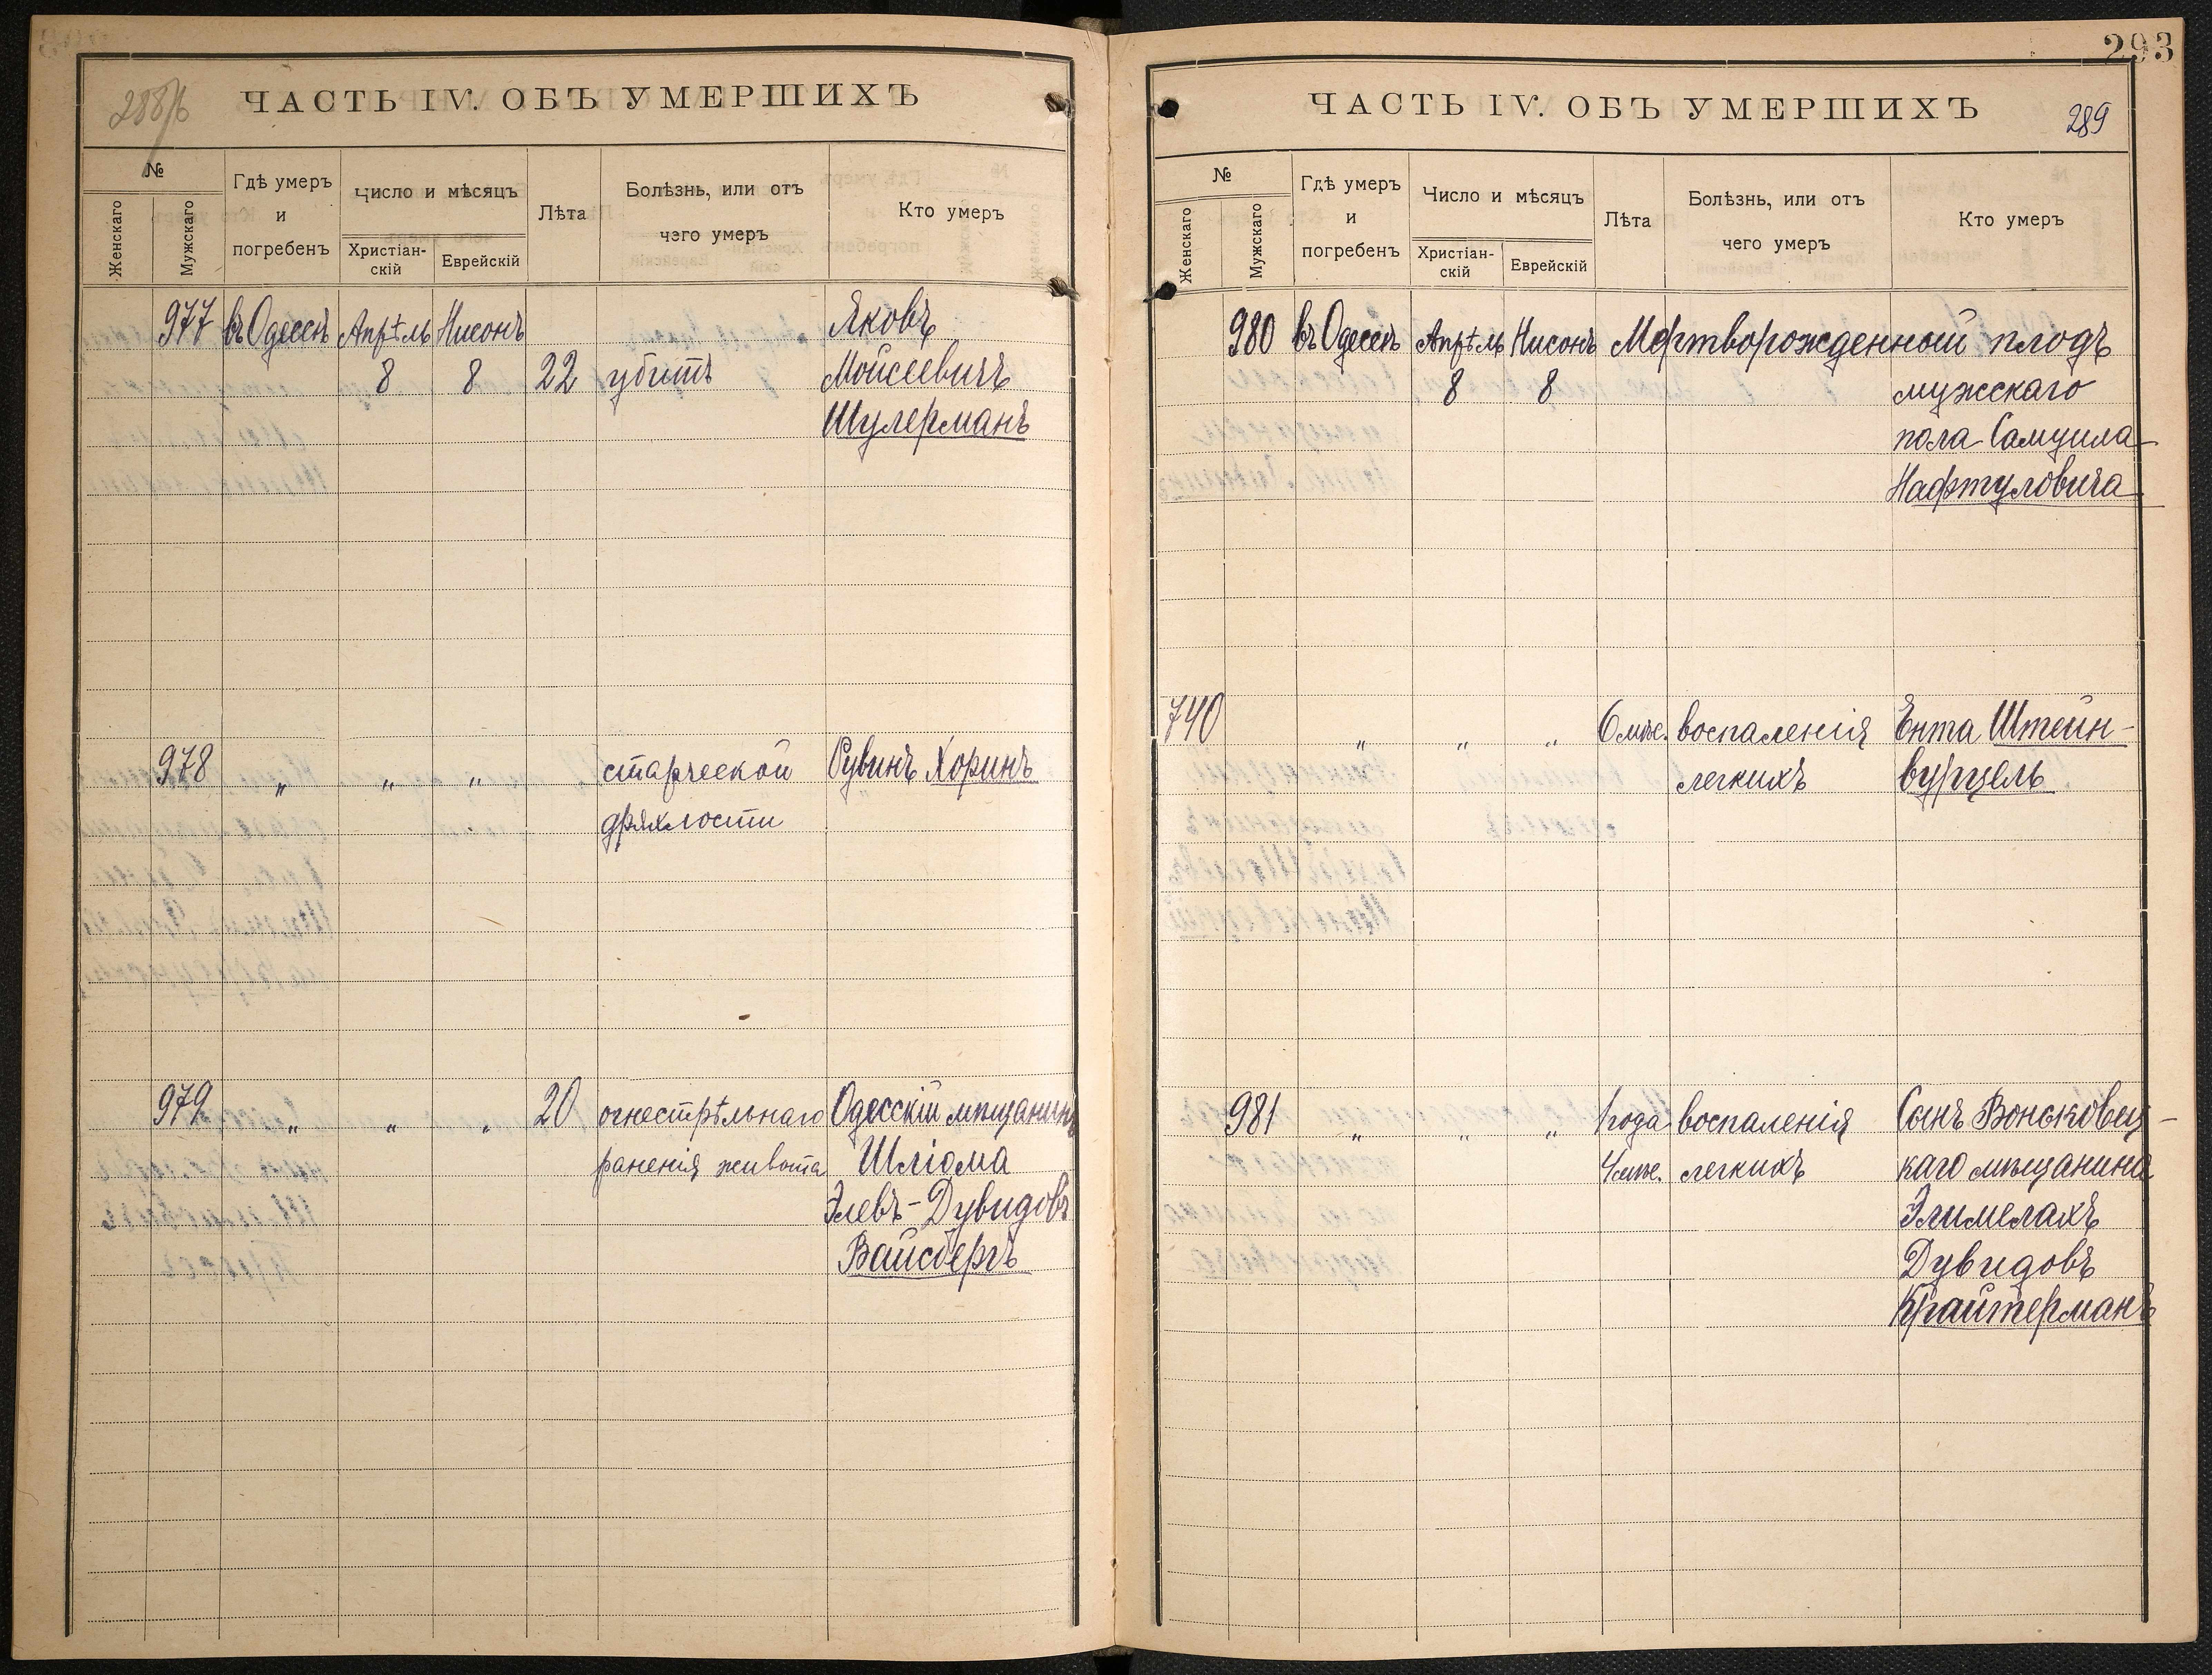 288/б
ЧАСТЬ IV. ОБЪ УМЕРШИХЪ
№
Женскаго
Мужскаго
Гдѣ умеръ
и
погребенъ
Число и мѣсяцъ
Христіан-
скій
Еврейскій
Лѣта
Болѣзнь, или отъ
чего умеръ
Кто умеръ
977 въ Одессѣ Апрѣль Нисонъ Яковъ
8 8 22 убитъ Мойсеевичъ
Шулерманъ
978 " " " старческой Рувинъ Хоринъ
дряхлости
979 " " " 20 огнестрѣльнаго Одесскій мѣщанинъ
раненія живота Шліома
Элевъ-Дувидовъ
Вайсбергъ
293
ЧАСТЬ IV. ОБЪ УМЕРШИХЪ
289
№
Женскаго
Мужскаго
Гдѣ умеръ
и
погребенъ
Число и мѣсяцъ
Христіан-
скій
Еврейскій
Лѣта
Болѣзнь, или отъ
чего умеръ
Кто умеръ
980 въ Одессѣ Апрѣль Нисонъ Мертворожденный плодъ
8 8 мужескаго
пола Самуила
Нафтуловича
740 " " " 6 мѣс. воспаленія Ента Штейн-
легкихъ вурцель
981 " " " 1 года воспаленія Сынъ
4 мѣс. легкихъ каго мѣщанина
Элимелахъ
Дувидовъ
Крайтерманъ